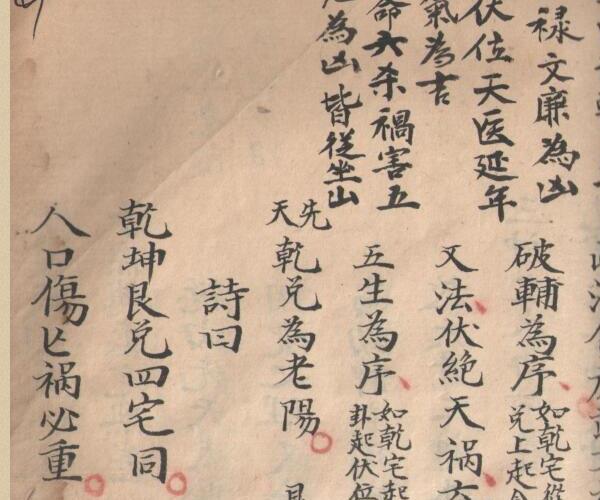 禄文廉為凶
伏位天医延年
氣為吉
命六杀禍害五
為凶皆從坐山
破輔為序
如乾宅從
兌上起
又法伏絶天禍六
五生為序
如乾宅起
卦起伏位
先天
乾兌為老陽
詩曰
乾坤艮兌四宅同
人口傷亡禍必重